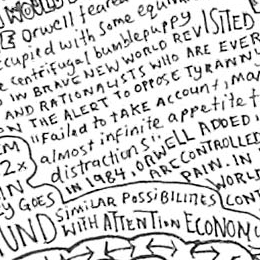 WOULD
E Orwell feared
ccupied with some equiv
centrifugal bumblepuppy
IN BRAVE NEW WORLD REVISITED
AND RATIONALISTS WHO ARE EVER
ON THE ALERT TO OPPOSE TYRANNY
"Failed to take account, ma
almost infinite appetite f
distractions". ORWELL ADDED
IN 1984, ORWELL
ARE CONTROLLED
PAIN. IN
WORLD
CONT
EM
2x
IN
Y GOES
UND
SIMILAR POSSIBILITIES
WITH ATTENTION ECONOMY